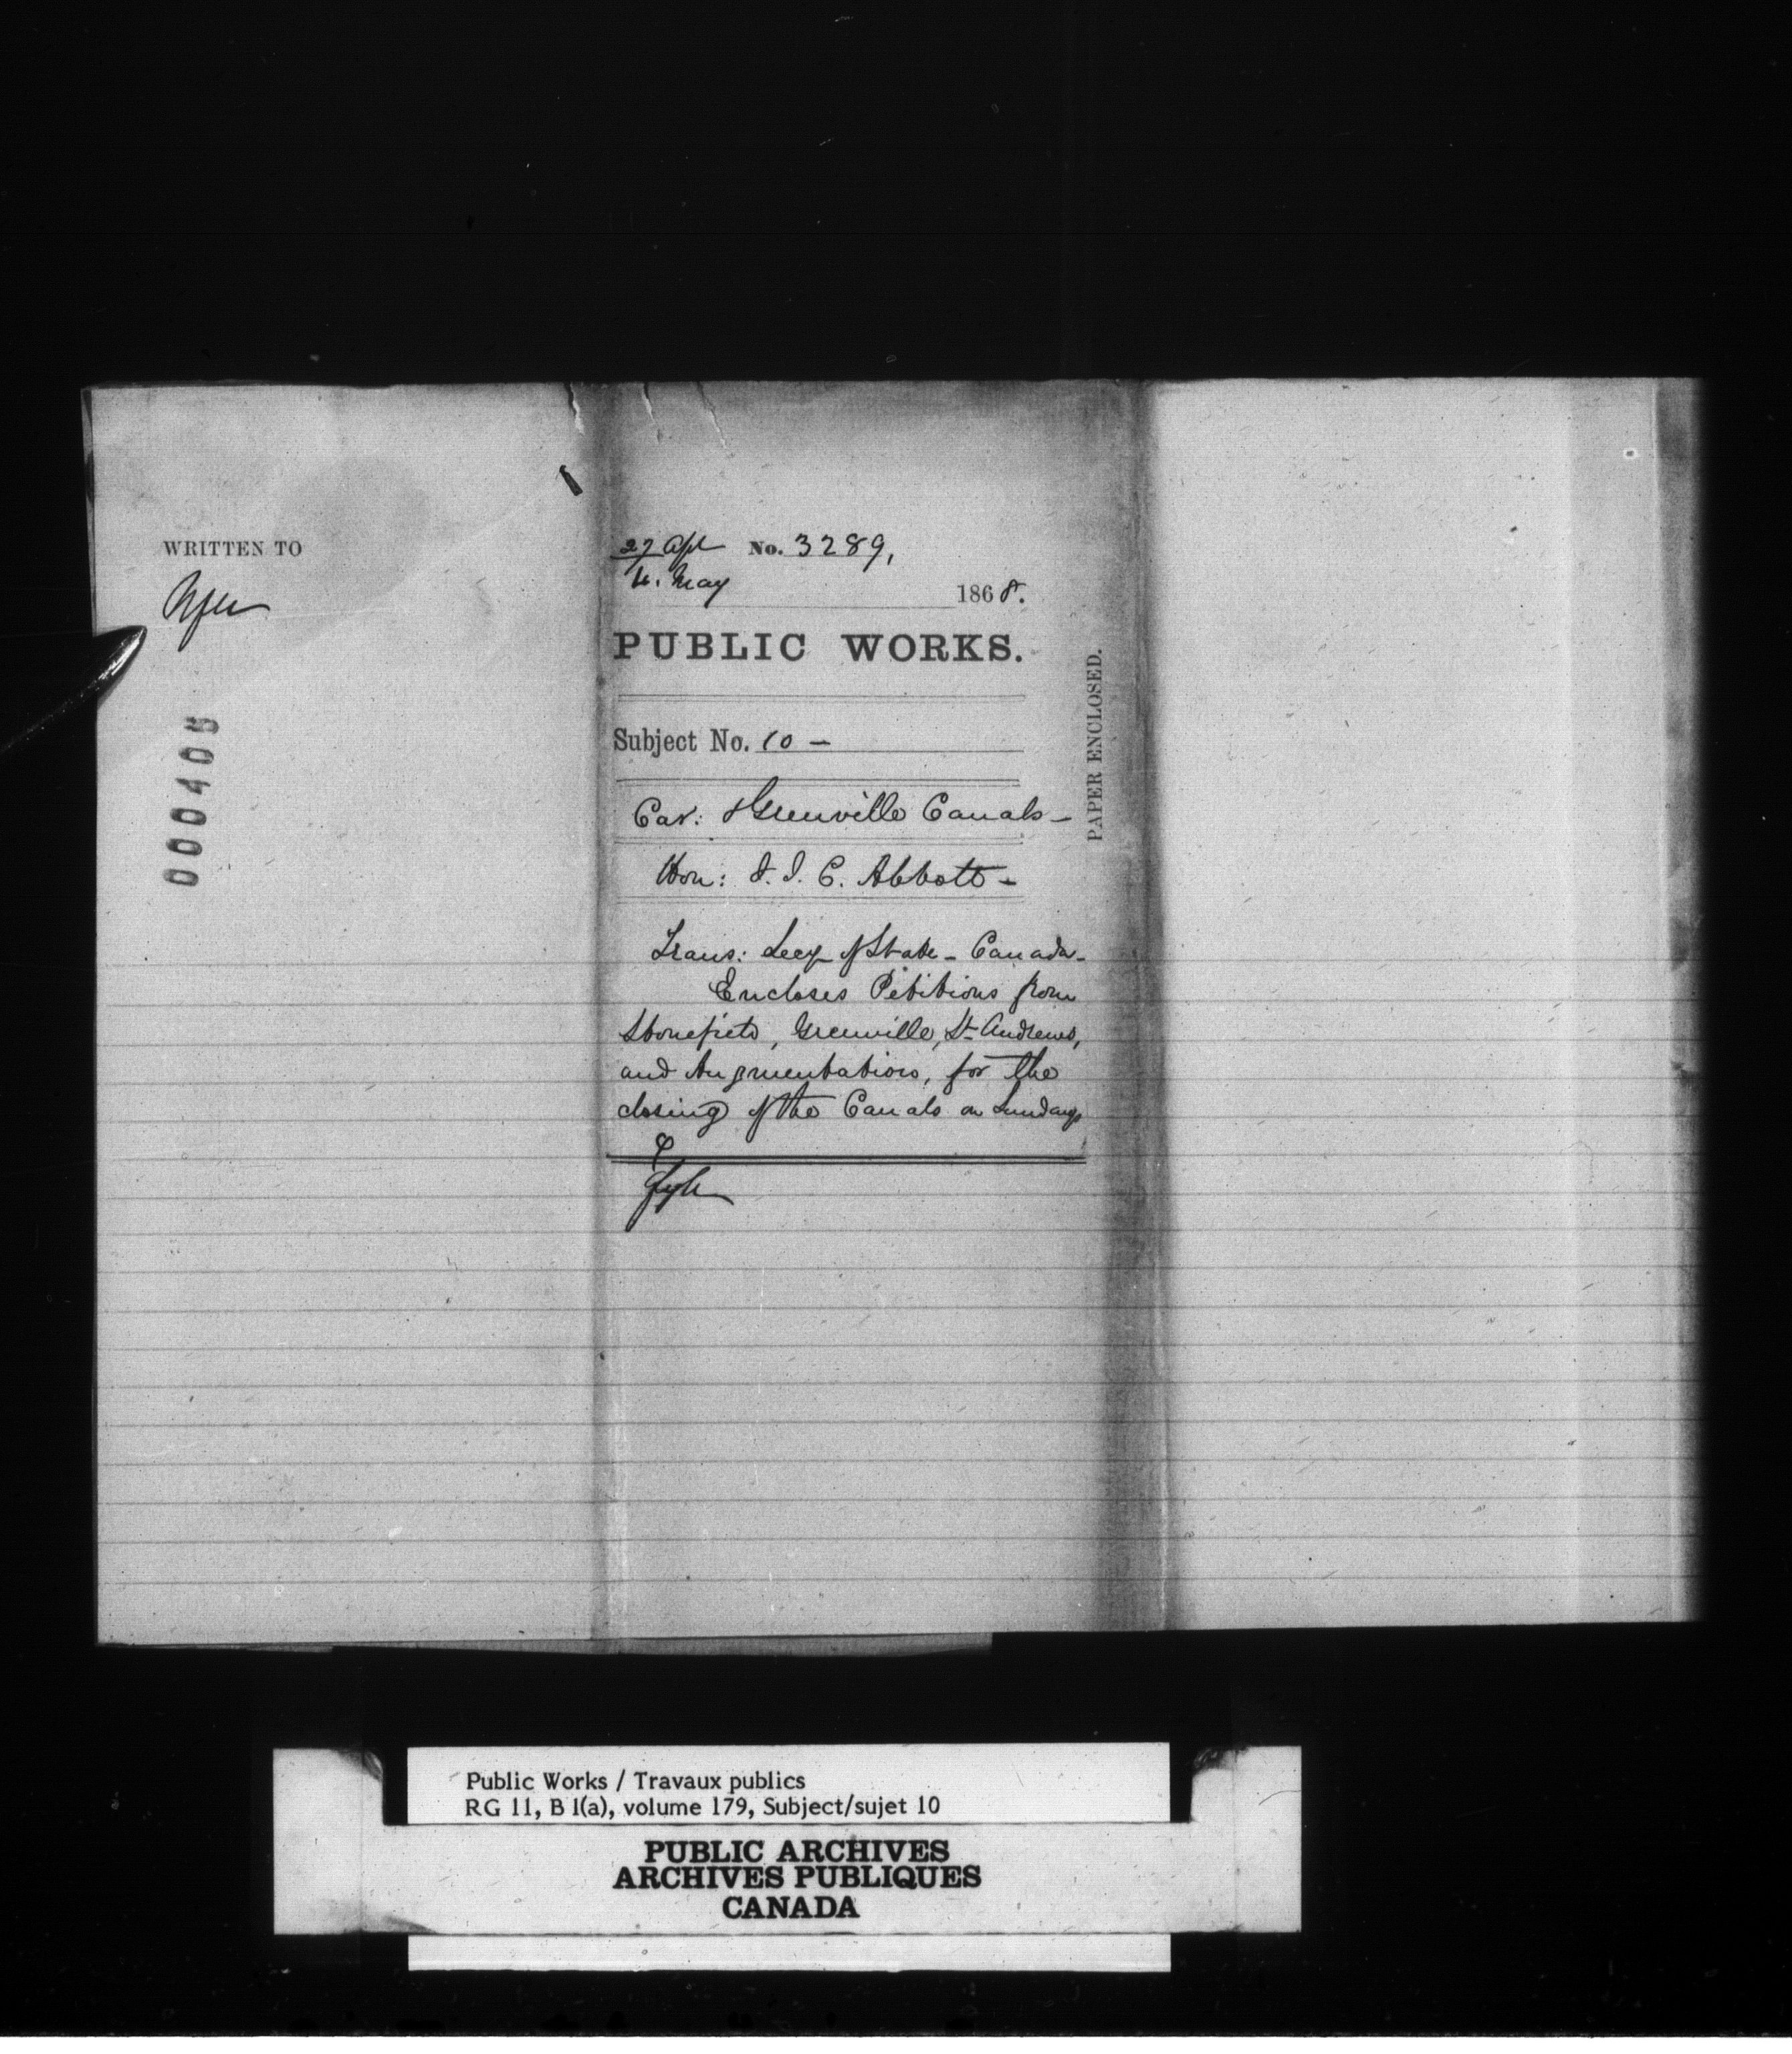 WRITTEN TO
000405
27 Apl No. 3289,
4. May 1868.
PUBLIC WORKS.
Subject No. 10 -
Car: & Grenville Canals -
Hon: J. J. C. Abbott -
Trans: Secy of State - Canada -
Encloses Petitions from
Stonefield, Grenville, St Andrews,
and Augmentation, for the
closing of the Canals on Sundays
PAPER ENCLOSED.
Public Works / Travaux publics
RG 11, B 1(a), volume 179, Subject/sujet 10
PUBLIC ARCHIVES
ARCHIVES PUBLIQUES
CANADA